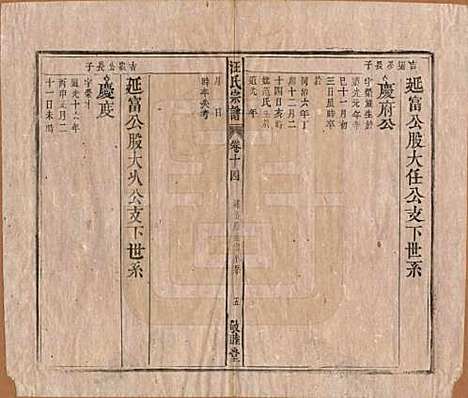 延富公股大任公支下世系
長子
慶府公
字榮
生於
道光元年辛
巳十一月初
三日辰時卒
同治六年丁
卯十二月二
十四日亥時
娶范氏生於
道光 年
月 日
時卒失考
汪氏宗譜
卷十四
五
敦睦堂
延富公股大火公支下世系
吉徽公長子
慶度
字榮
道光十六年
丙申正月二
十一日未時